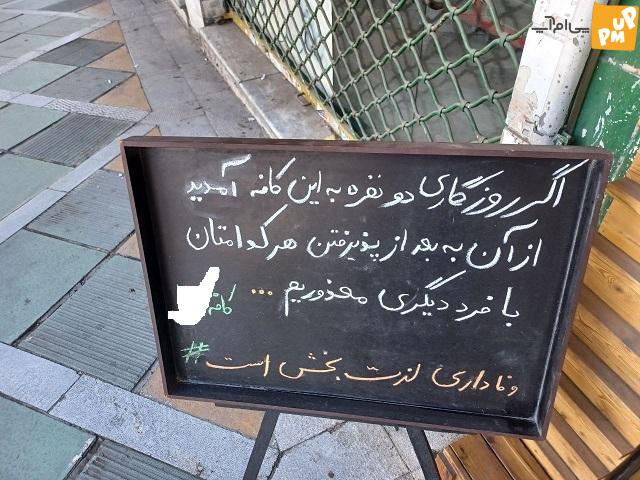 پی‌ام‌آپ
UP
PM
اگر روزگاری دو نفره به این کافه آمدید
از آن به بعد از پذیرفتن هرکدامتان
با فرد دیگری معذوریم ...
کافه
# وفاداری لذت بخش است